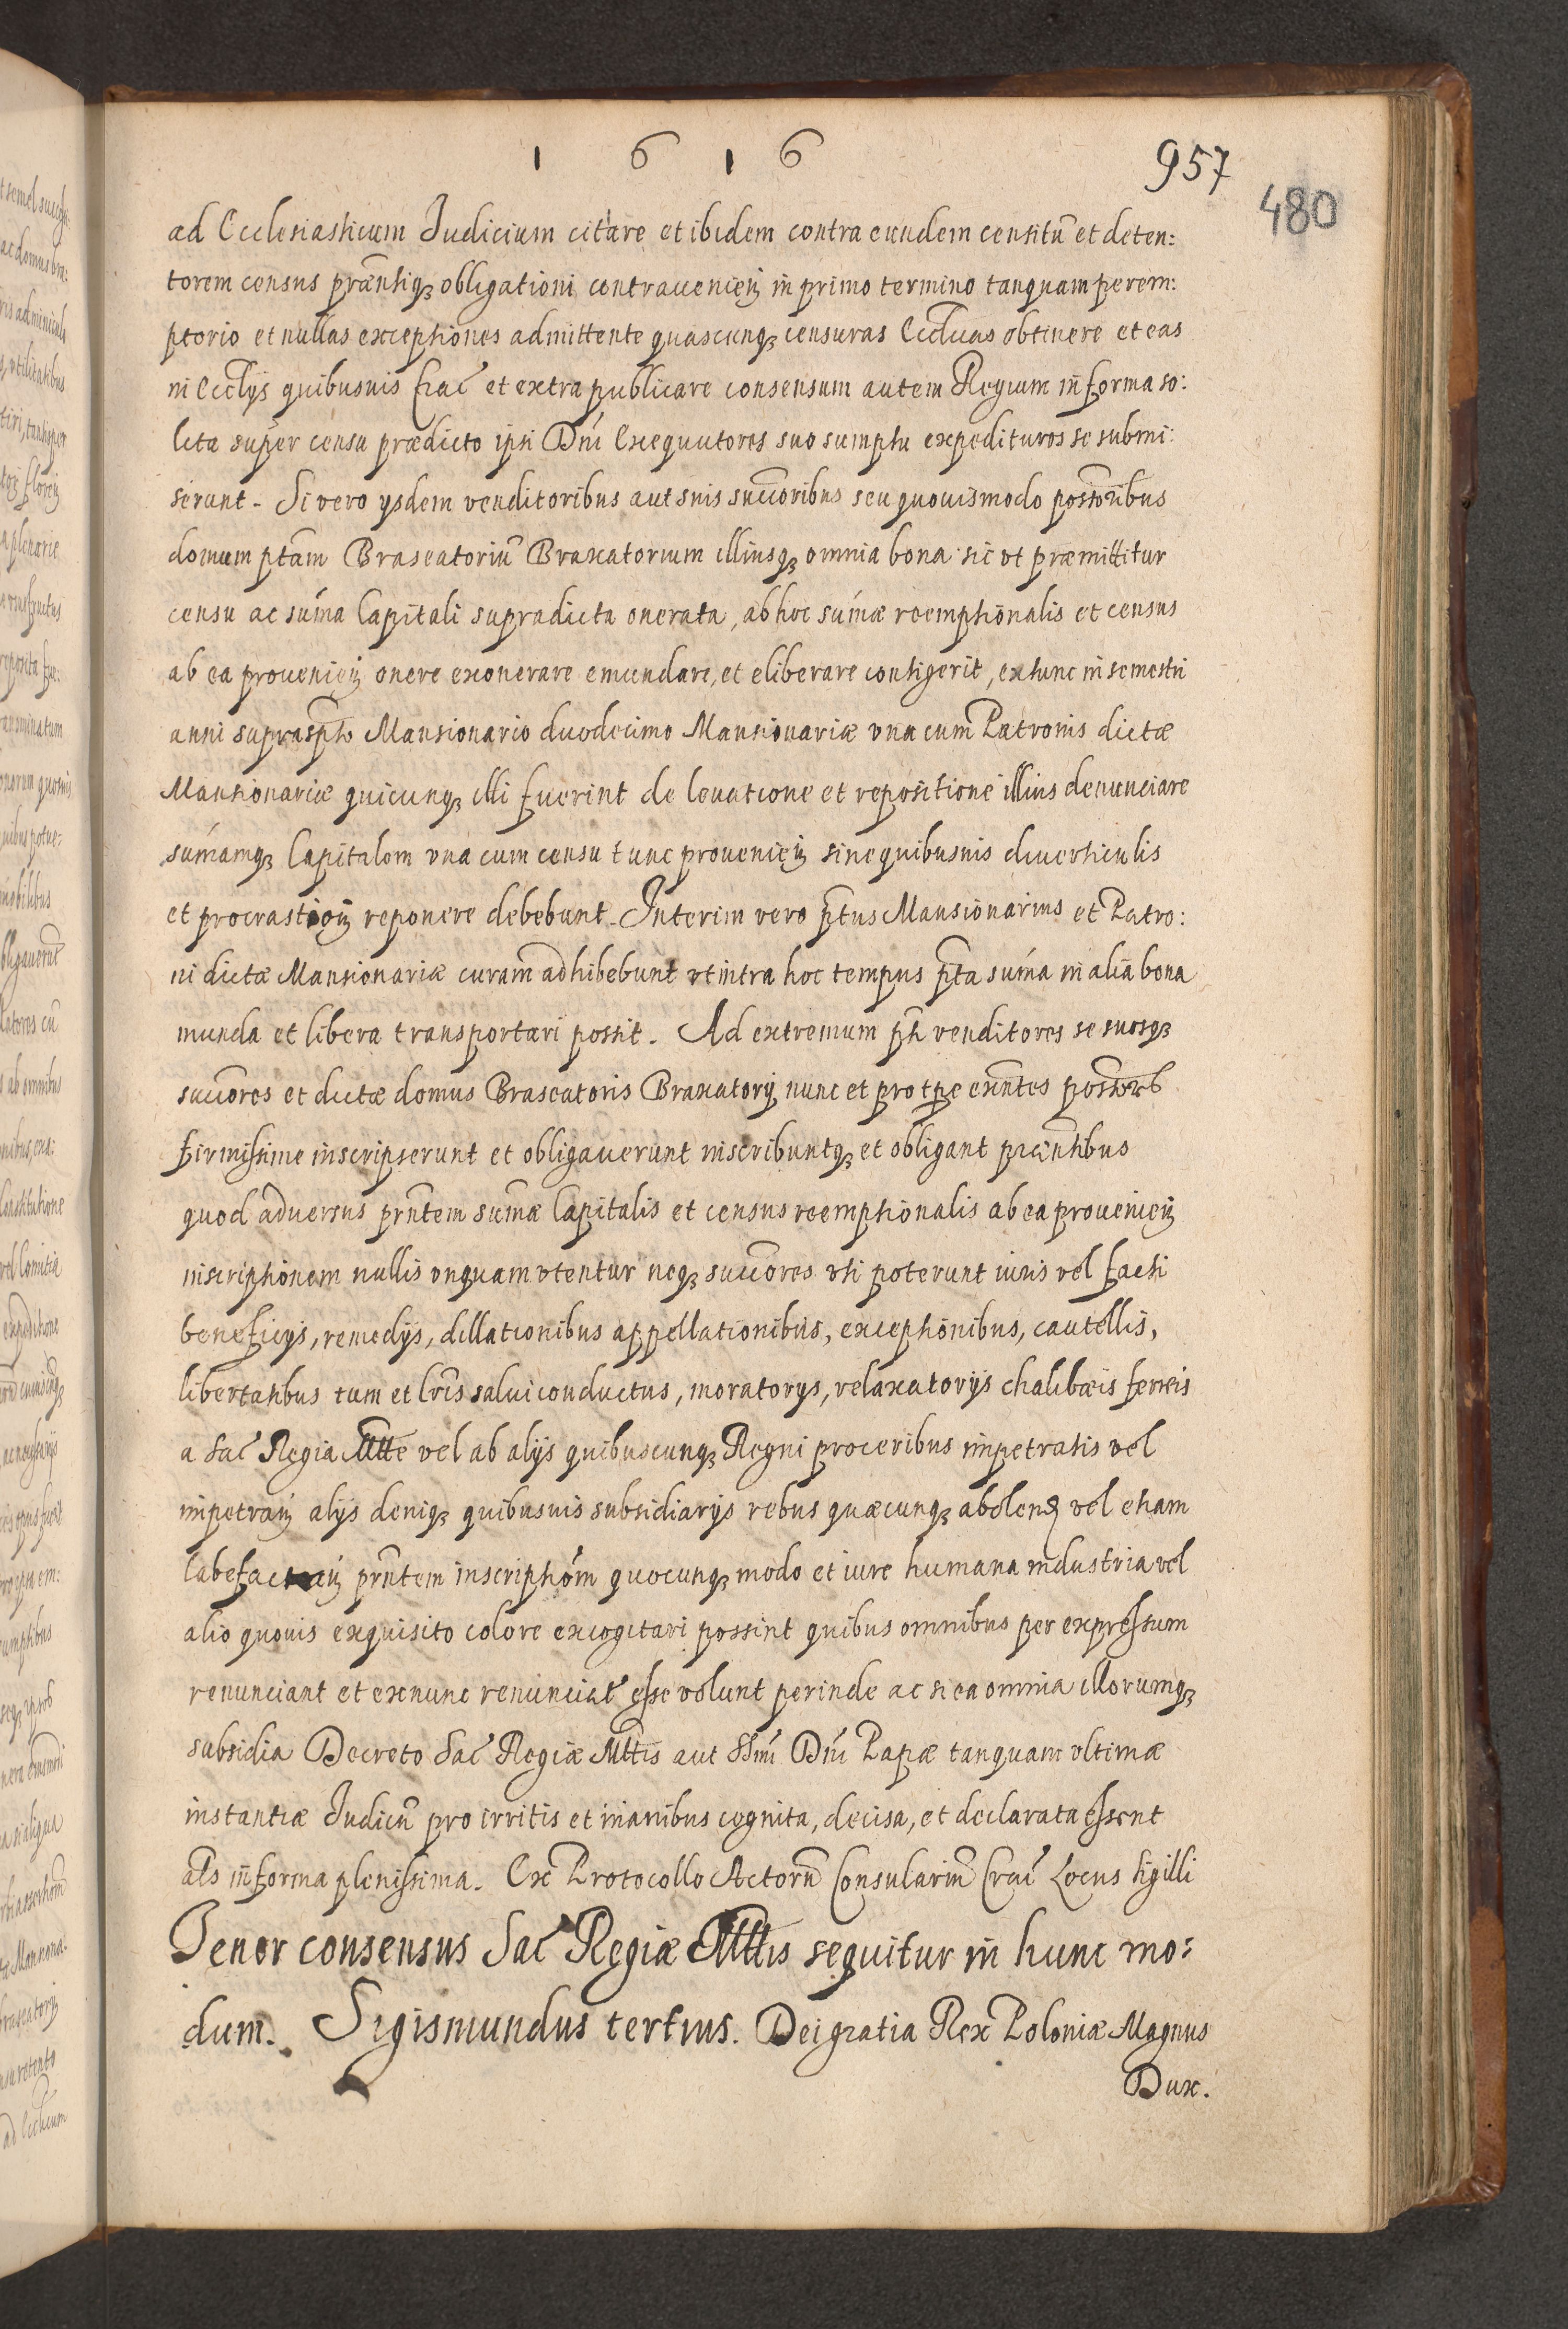 1 6 1 6
957
480
ad Ecclesiasticum Judicium citare et ibidem contra eundem censitũ et deten:
torem census præntisq3 obligationi contraueniẽ in primo termino tanquam perem:
ptorio et nullas exceptiones admittente quascunq3 censuras Ecclicas obtinere et eas
in Ecclijs quibusuis Crac et extra publicare consensum autem Regium in forma so:
lita super censu prædicto ipsi Dni Exequutores suo sumptu expedituros se submi:
serunt. Si vero ijsdem venditoribus aut suis succoribus seu quouismodo possoribus
domum ptam Braseatoriũ Braxatorium illiusq3 omnia bona sic vt præmittitur
censu ac suma Capitali supradicta onerata, ab hoc sumæ reemptionalis et census
ab ea proueniẽ onere exonerare emundare, et eliberare contigerit, extunc in semestri
anni suprascpto Mansionario duodecimo Mansionariæ vna cum Patronis dictæ
Mansionariæ quicunq3 illi fuerint de leuatione et repositione illius denunciare
sumamq3 Capitalem vna cum censu tunc proueniẽ sine quibusuis diuerticulis
et procrastioñ reponere debebunt. Interim vero ptus Mansionarius et Patro:
ni dictæ Mansionariæ curam adhibebunt vt intra hoc tempus pta suma in alia bona
munda et libera transportari possit. Ad extremum pti venditores se suosq3
succores et dictæ domus Braseatoris Braxatorij nunc et pro tpe exntes possores
firmissime inscripserunt et obligauerunt inscribuntq3 et obligant præntibus
quod aduersus prntem sumæ Capitalis et census reemptionalis ab ea proueniẽ
inscriptionem nullis vnquam vtentur neq3 succores vti poterunt iuris vel facti
beneficijs, remedijs, dillationibus appellationibus, exceptionibus, cautellis,
libertatibus tum et lris saluiconductus, moratorys, relaxatorijs chalibæis ferreis
a Sac Regia Mtte vel ab alijs quibuscunq3 Regni proceribus impetratis vel
impetrañ alijs deniq3 quibusuis subsidiarijs rebus quæcunq3 abolend vel etiam
labefactañ prntem inscriptiom quocunq3 modo et iure humana industria vel
alio quouis exquisito colore excogitari possint quibus omnibus per expressum
renunciant et exnunc renunciat esse volunt perinde ac si ea omnia illorumq3
subsidia Decreto Sac Regiæ Mttis aut SSmi Dni Papæ tanquam vltimæ
instantiæ Judicũ pro irritis et inanibus cognita, decisa, et declarata essent
als in forma plenissima. Ex Protocollo Actorũ Consulariũ Crac Locus Sigilli
Tenor consensus Sac Regiæ Mttis sequitur in hunc mo:
dum. Sigismundus tertius. Dei gratia Rex Poloniæ Magnus
Dux.